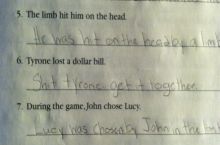 5. The limb hit him on the head.
He was hit on the head by a limb
6. Tyrone lost a dollar bill.
Shit tyrone, get it together
7. During the game, John chose Lucy.
Lucy was chosen by John in the